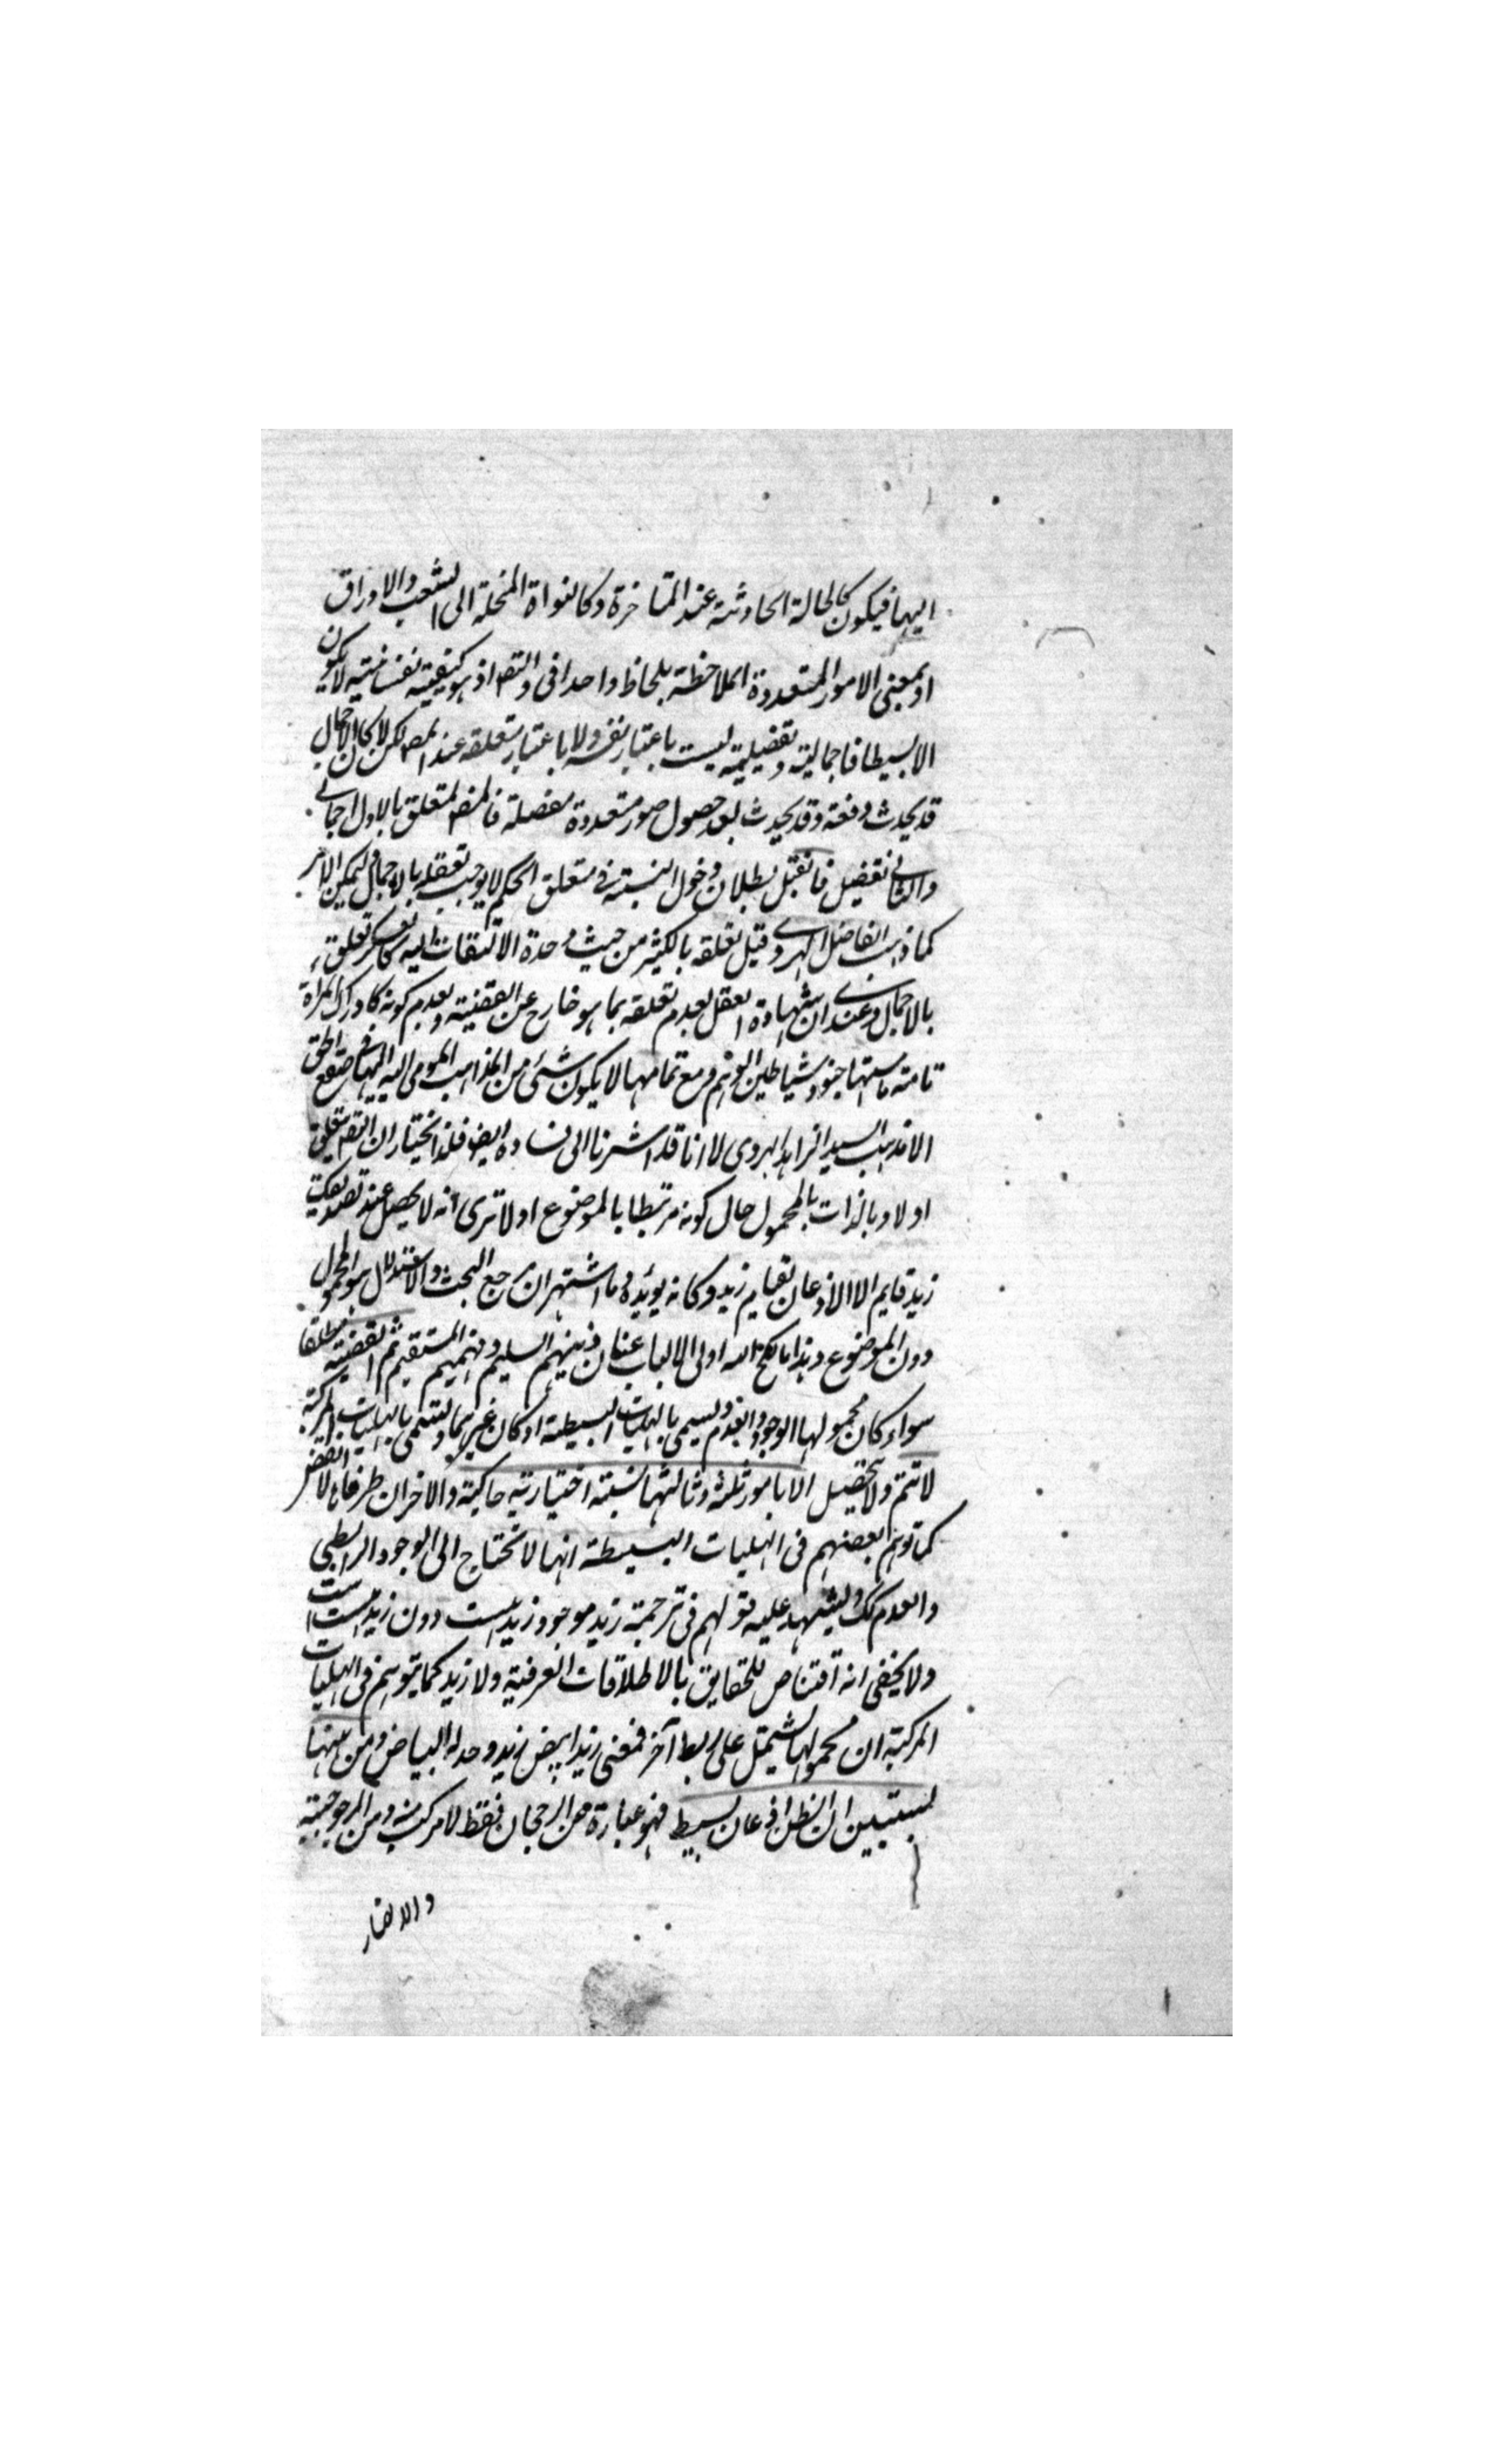 اليها فيكون كالحالة الحادثة عند المتاخرة وكالنواة المنحلة الى الشعب والاوراق
او بمعنى الامور المتعددة الملاحظة بلحاظ واحد افى والتصـ اذ هو كيفية نفسانية لا يكون
الا بسيطا فاجمالية وتفصيلية ليست باعتبار نفسه ولا باعتبار متعلقه عند المصـ لكن لا كان الاجمال
قد يحدث دفعة وقد يحدث بعد حصول صور متعددة مفصلة فالتصـ المتعلق بالاول اجمالي
والثاني تفصيل فانقبل بطلان دخول النسبة في متعلق الحكم لا يوجب تعقله بالاجمال ليمكن الامر
كما ذهب الفاضل الهروي وقيل تعلقه بالكثير من حيث وحدة الالتفات اليه تعلق
بالاجمال وعندى ان شهادة العقل بعدم تعلقه بما هو خارج عن القضية وبعدم كونه كادراك المراة
تامة ما ستها جنود شياطين الوهم ومع تمامها لا يكون شئ من المذاهب المومى اليه اليها في صقع الحق
الا مذهب السيد الزاهد الهروى لا انا قد اشرنا الى فساده ايضا فلنا نختار ان التصـ يتعلق
اولا وبالذات بالمحمول حال كونه مرتبطا بالموضوع اولا ترى انه لا يحصل عند تصديقك
زيد قايم الا الاذعان بقيام زيد وكانه يويده ما اشتهر ان مرجع البحث والاستدلال هو المحمول
دون الموضوع وهذا ما اولى الالباب عنان ذهنهم السليم وفهمهم المستقيم ثم القضية مطلقا
سواء كان محمولها الوجود والعدم ويسمى بالهليات البسيطة او كان غيرهما ويسمى بالهليات المركبة
لا تتم ولا تحصيل الا بامور ثلثة وثالثها نسبة اختيارية حاكية والاخران طرفاها لا
كما توهم بعضهم فى الهليات البسيطة انها لا تحتاج الى الوجود الرابطي
والعدم كك ويشهد عليه قولهم فى ترجمة زيد موجود زيد هست دون زيد هست است
ولا يخفى انه اقتناص للحقايق بالاطلاقات العرفية ولا زيد كما يتوهم فى الهليات
المركبة ان محمولها يشتمل على ربط آخر فمعنى زيد ابيض زيد وجد له البياض ومن ههنا
يستبين ان الظن اذعان بسيط فهو عبارة عن الرجحان فقط لا مركب منه ومن المرجوحية
والا لصار